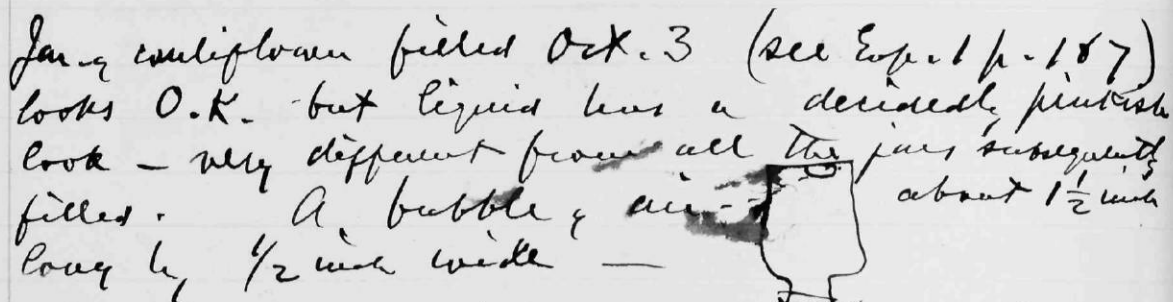 Jar of cauliflower filled Oct. 3 (see Exp. 1 p. 187)
looks O.K. but liquid has a decidedly pinkish
look — very different from all the jars subsequently
filled. A bubble of air -- about 1 1/2 inch
long by 1/2 inch wide —